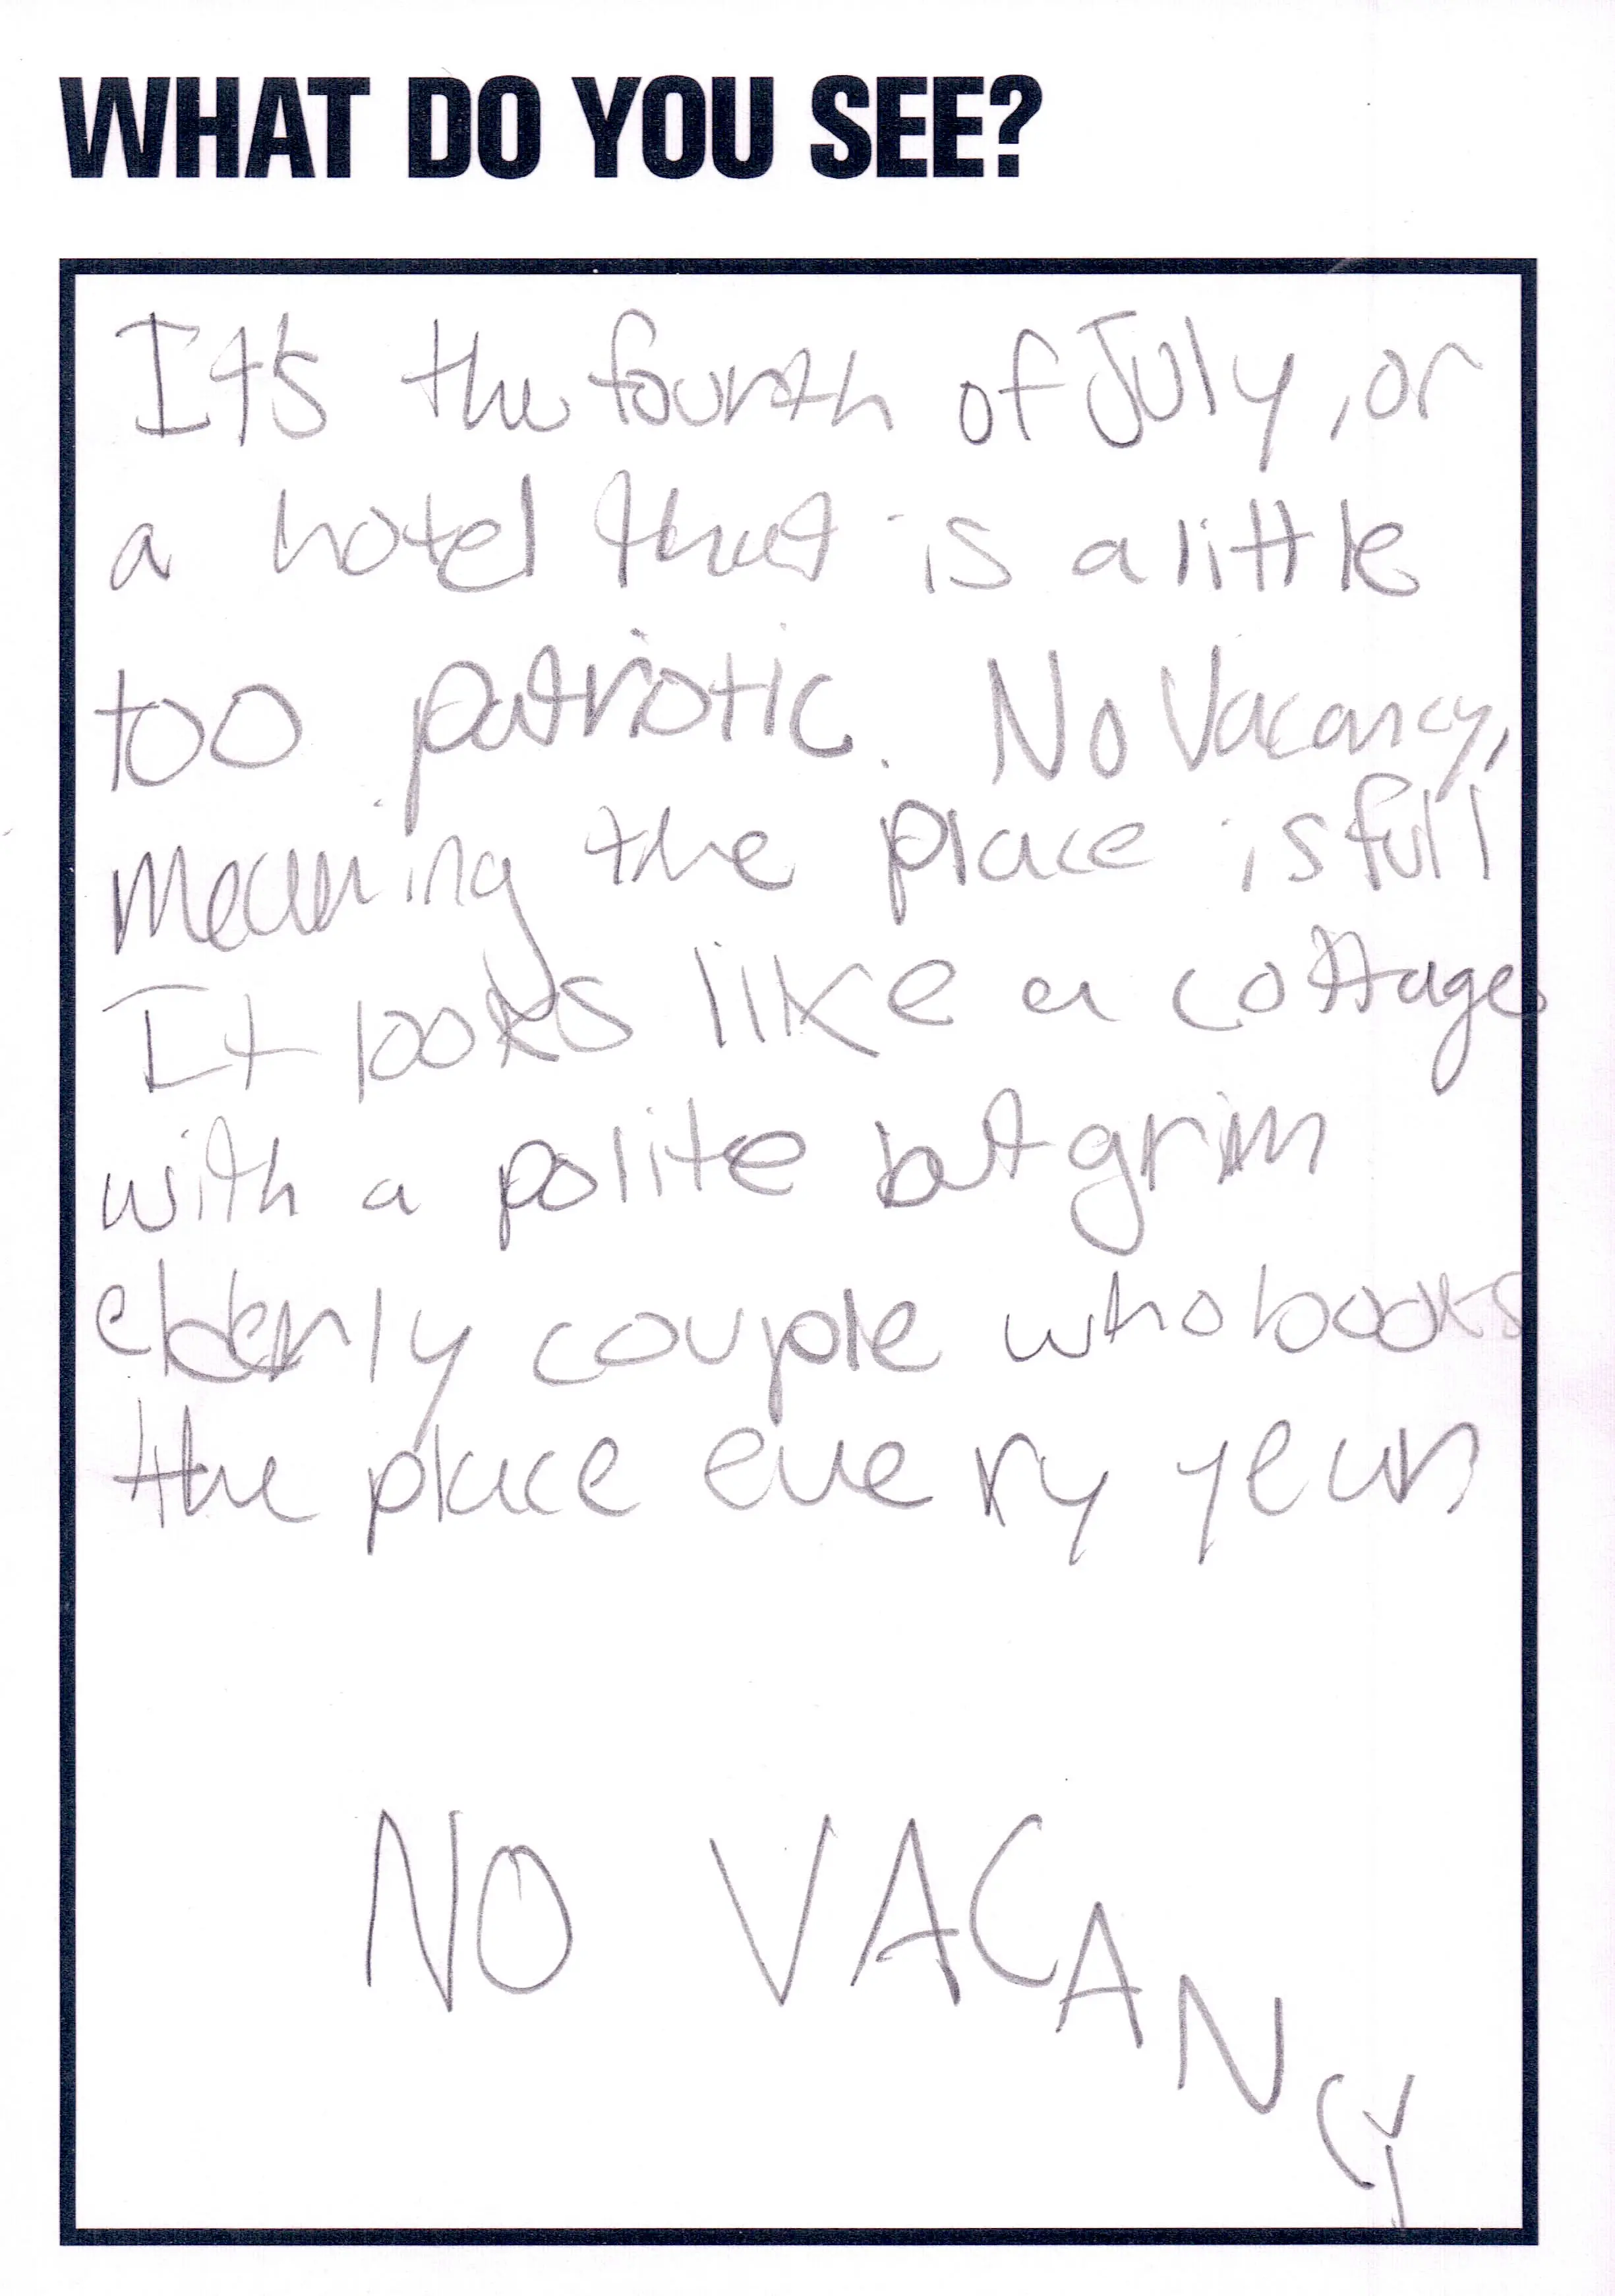 WHAT DO YOU SEE?
It's the fourth of July, or
a hotel that is a little
too patriotic. No Vacancy,
meaning the place is full
It looks like a cottage
with a polite but grim
elderly couple who books
the place every year
NO VACANCY